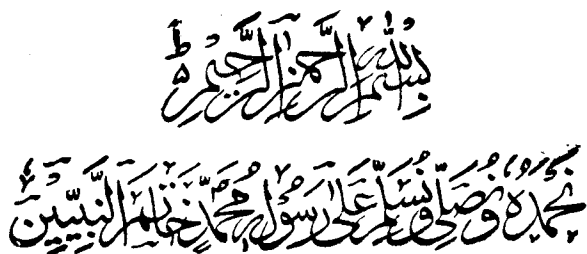 بِسْمِ اللهِ الرَّحْمٰنِ الرَّحِيْمِ ۵ ط
نَحْمَدُهٗ وَنُصَلِّیْ وَنُسَلِّمُ عَلٰی رَسُوْلِهٖ مُحَمَّدٍ خَاتَمِ النَّبِیّٖنَ